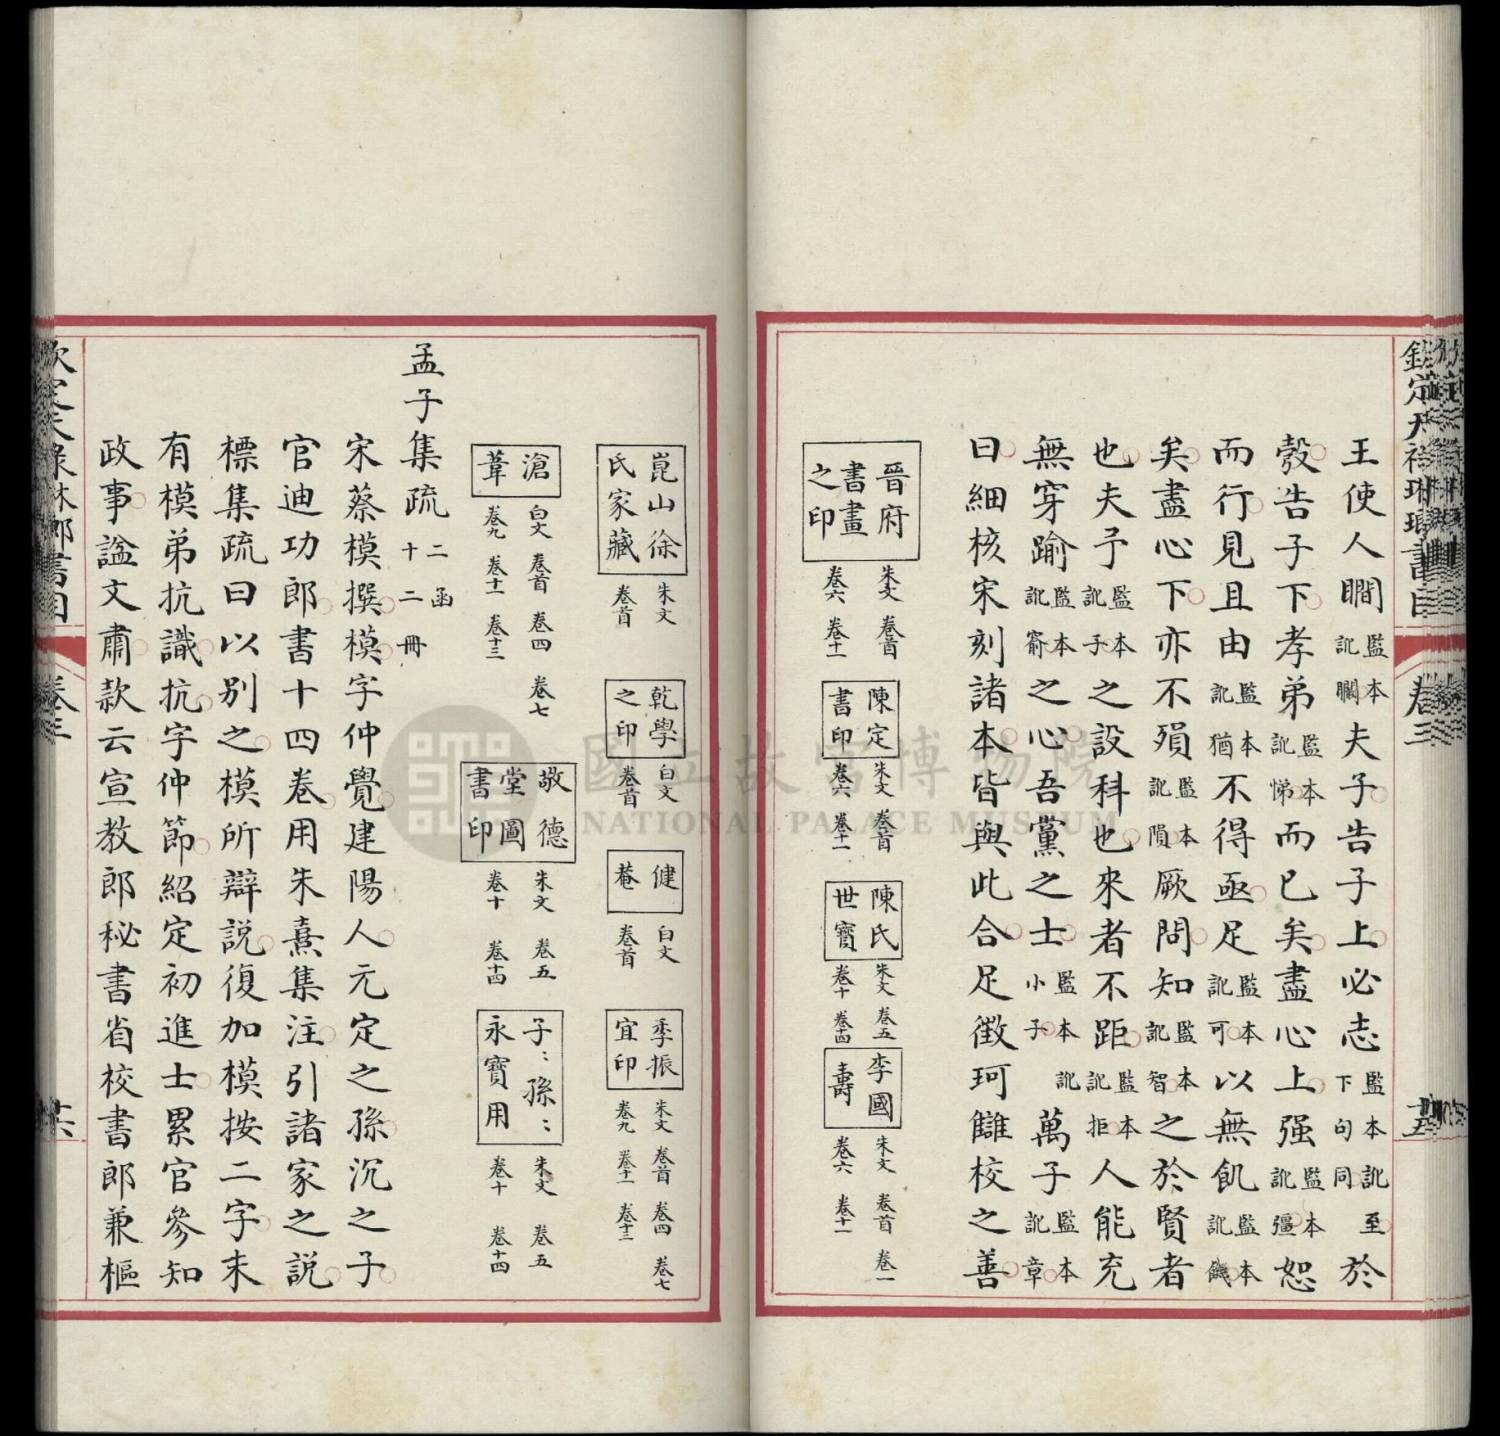 欽定天祿琳琅書目 卷三
王使人瞯監本訛矙夫子告子上必志監本訛至下句同於
彀告子下孝弟監本訛悌而已矣盡心上强監本訛彊恕
而行見且由監本訛猶不得亟足監本訛可以無飢監本訛饑
矣盡心下亦不殞監本訛隕厥問知監本訛智之於賢者
也夫予監本訛子之設科也來者不距監本訛拒人能充
無穿踰監本訛窬之心吾黨之士監本訛小子萬子監本訛章
曰細核宋刻諸本皆與此合足徵珂讎校之善
晉府書畫之印 朱文 卷首 卷六 卷十一
陳定書印 朱文 卷首 卷六 卷十一
陳氏世寶 朱文 卷五 卷十 卷十四
李國壽 朱文 卷首 卷一 卷六 卷十一
崑山徐氏家藏 朱文 卷首
乾學之印 白文 卷首
健菴 白文 卷首
季振宜印 朱文 卷首 卷四 卷七 卷九 卷十一 卷十三
滄葦 白文 卷首 卷四 卷七 卷九 卷十一 卷十三
敬德堂圖書印 朱文 卷五 卷十 卷十四
子:孫:永寶用 朱文 卷五 卷十 卷十四
孟子集疏 二函 十二冊
宋蔡模撰模字仲覺建陽人元定之孫沉之子
官迪功郎書十四卷用朱熹集注引諸家之説
標集疏曰以別之模所辯説復加模按二字末
有模弟抗識抗字仲節紹定初進士累官參知
政事諡文肅款云宣教郎秘書省校書郎兼樞
欽定天祿琳琅書目 卷三
國立故宮博物院
NATIONAL PALACE MUSEUM